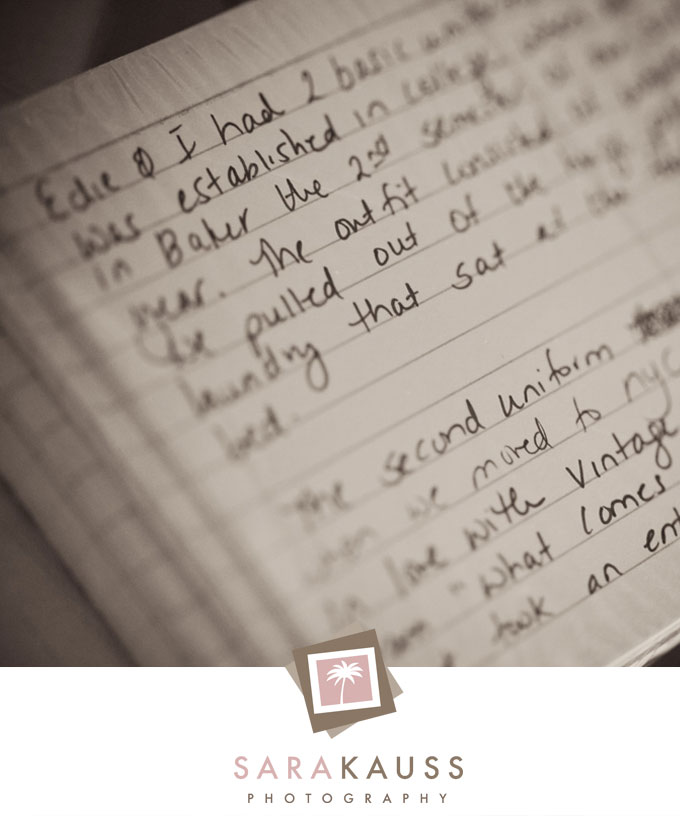 Edie & I had 2 basic
was established in college
in Baker the 2nd
year. The outfit consisted of
pulled out of the
laundry that sat at the
bed.
The second uniform
when we moved to nyc
in love with vintage
"what comes
took an
SARAKAUSS
PHOTOGRAPHY